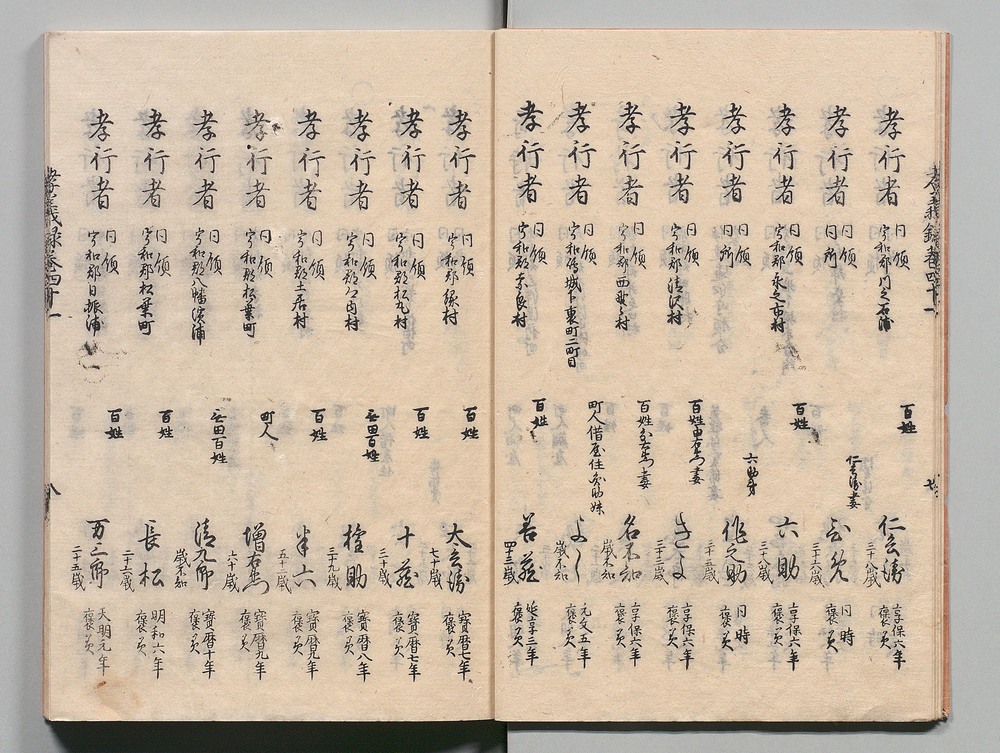 孝行者 同領 宇和郡川之石浦 百姓 仁兵衛 三十八歳 享保六年 褒美
孝行者 同領 同所 仁兵衛妻 三十六歳 同時 褒美
孝行者 同領 宇和郡永之市村 百姓 六助 三十八歳 享保六年 褒美
孝行者 同領 同所 六助弟 作之助 三十五歳 同時 褒美
孝行者 同領 宇和郡清沢村 百姓 妻 きよ 三十三歳 享保六年 褒美
孝行者 同領 宇和郡 百姓 妻 名不知 歳不知 享保六年 褒美
孝行者 同領 宇和島城下東町二町目 町人借屋住 妹 よし 歳不知 元文五年 褒美
孝行者 同領 宇和郡奈良村 百姓 善蔵 四十三歳 延享三年 褒美
孝行者 同領 宇和郡 村 百姓 太兵衛 七十歳 寳暦七年 褒美
孝行者 同領 宇和郡松丸村 百姓 十蔵 三十歳 寳暦七年 褒美
孝行者 同領 宇和郡 村 無田百姓 権助 三十九歳 寳暦八年 褒美
孝行者 同領 宇和郡土居村 百姓 半六 五十一歳 寳暦九年 褒美
孝行者 同領 宇和郡松葉町 町人 増右衛門 六十歳 寳暦九年 褒美
孝行者 同領 宇和郡八幡浜浦 無田百姓 清九郎 歳不知 寳暦十年 褒美
孝行者 同領 宇和郡松葉町 百姓 長松 二十六歳 明和六年 褒美
孝行者 同領 宇和郡日振浦 百姓 万三郎 二十五歳 天明元年 褒美
孝義録巻四十一 八